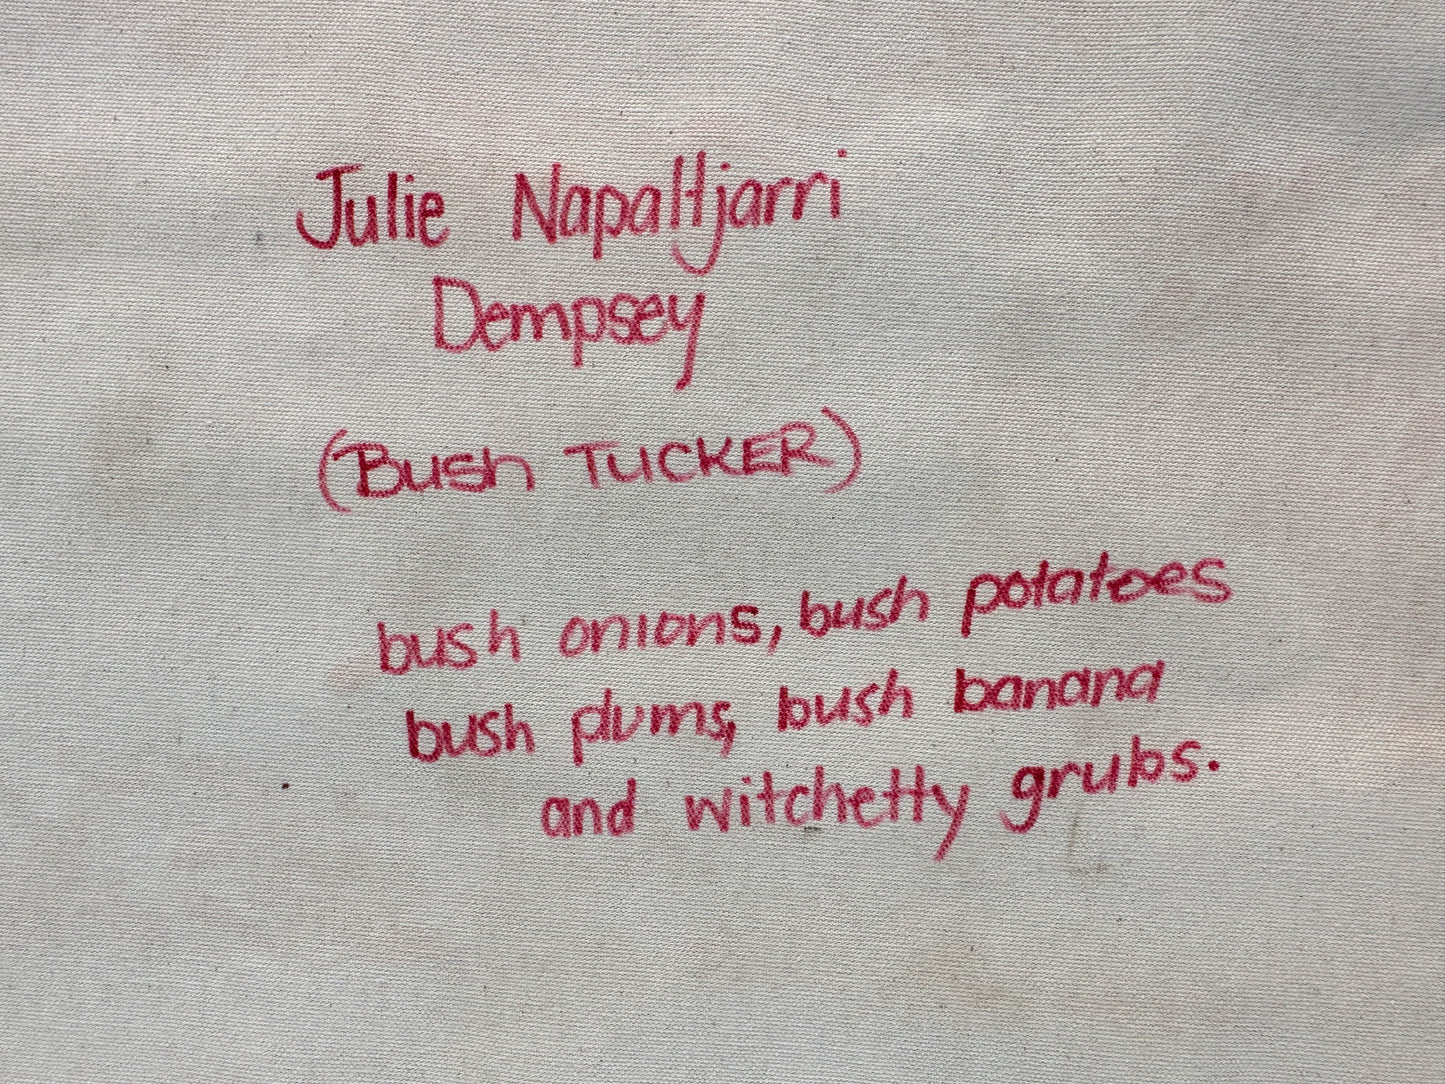 Julie Napaltjarri
Dempsey
(Bush TUCKER)
bush onions, bush potatoes
bush plums, bush banana
and witchetty grubs.